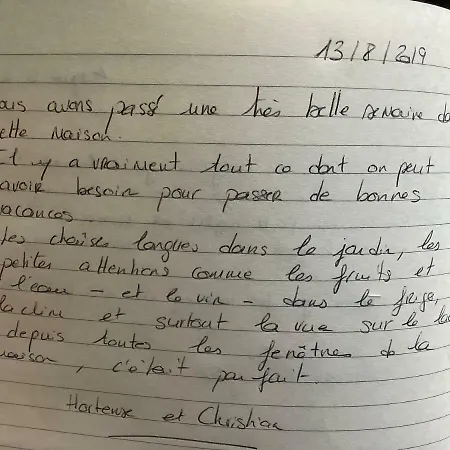 13/8/2019
ous avons passé une très belle semaine da
ette maison.
Il y a vraiment tout ce dont on peut
avoir besoin pour passer de bonnes
acances.
les chaises longues dans le jardin, les
petites attentions comme les fruits et
l'eau - et le vin - dans le frigo,
la clim et surtout la vue sur le la
depuis toutes les fenêtres de la
maison, c'était parfait.
Hortense et Christian